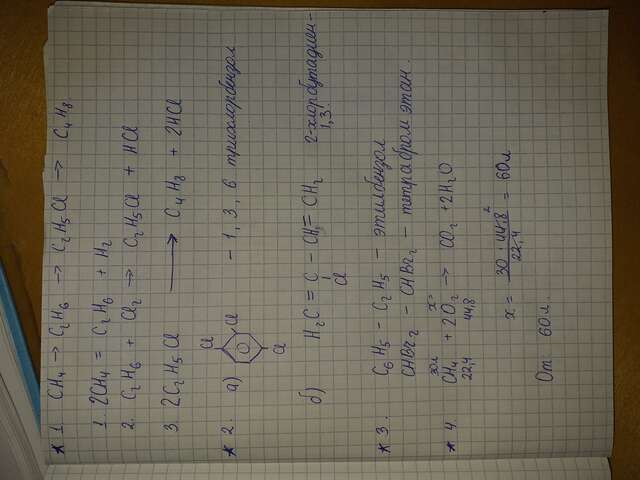 * 1. CH₄ → C₂H₆ → C₂H₅Cl → C₄H₈
1. 2CH₄ = C₂H₆ + H₂
2. C₂H₆ + Cl₂ → C₂H₅Cl + HCl
3. 2C₂H₅Cl ⟶ C₄H₈ + 2HCl
* 2. а) Cl Cl Cl - 1, 3, 6 трихлорбензол
б) H₂C = C - CH = CH₂ 2-хлорбутадиен-
Cl 1,3
* 3. C₆H₅ - C₂H₅ - этилбензол
CHBr₂ - CHBr₂ - тетрабром этан.
30л x=
* 4. CH₄ + 2O₂ → CO₂ + 2H₂O
22,4 44,8
x = 30 · 44,8 2 / 22,4 = 60л
От 60л.